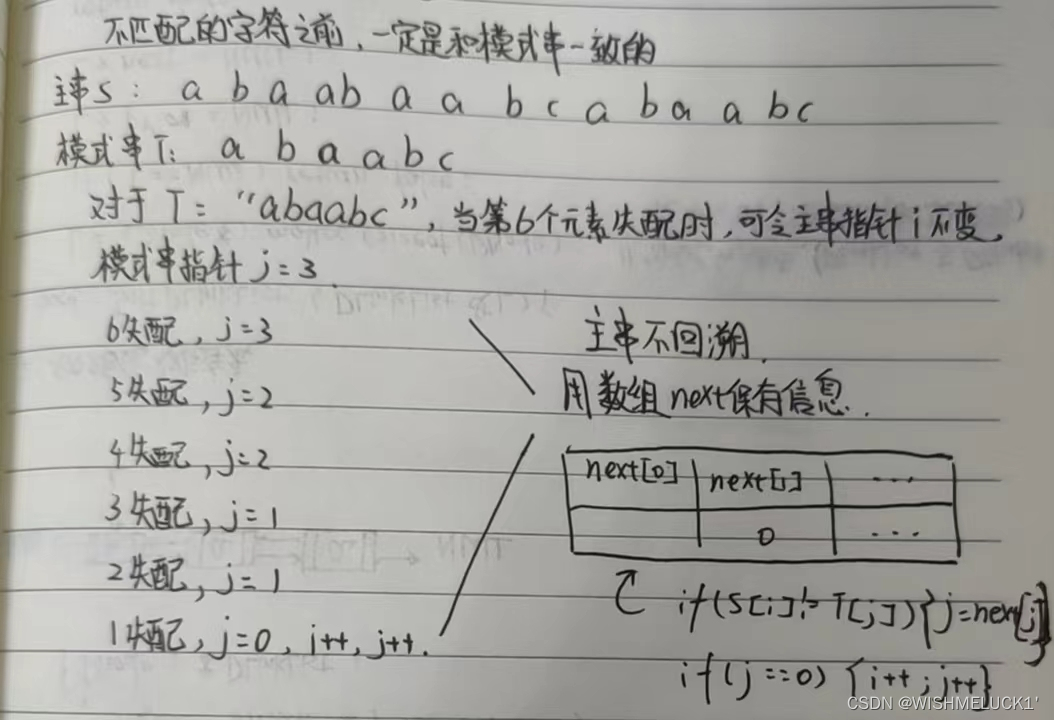 不匹配的字符之前,一定是和模式串一致的
主串S: a b a ab a a b c a b a a bc
模式串T: a b a a b c
对于T="abaabc",当第6个元素失配时,可令主串指针i不变,
模式串指针j=3
6失配,j=3
5失配,j=2
4失配,j=2
3失配,j=1
2失配,j=1
1失配,j=0,i++,j++.
主串不回溯.
用数组next保有信息.
next[0] next[1] ...
0 ...
if(S[i]!=T[j]){j=next[j]}
if(j==0){i++;j++}
CSDN @WISHMELUCK1'